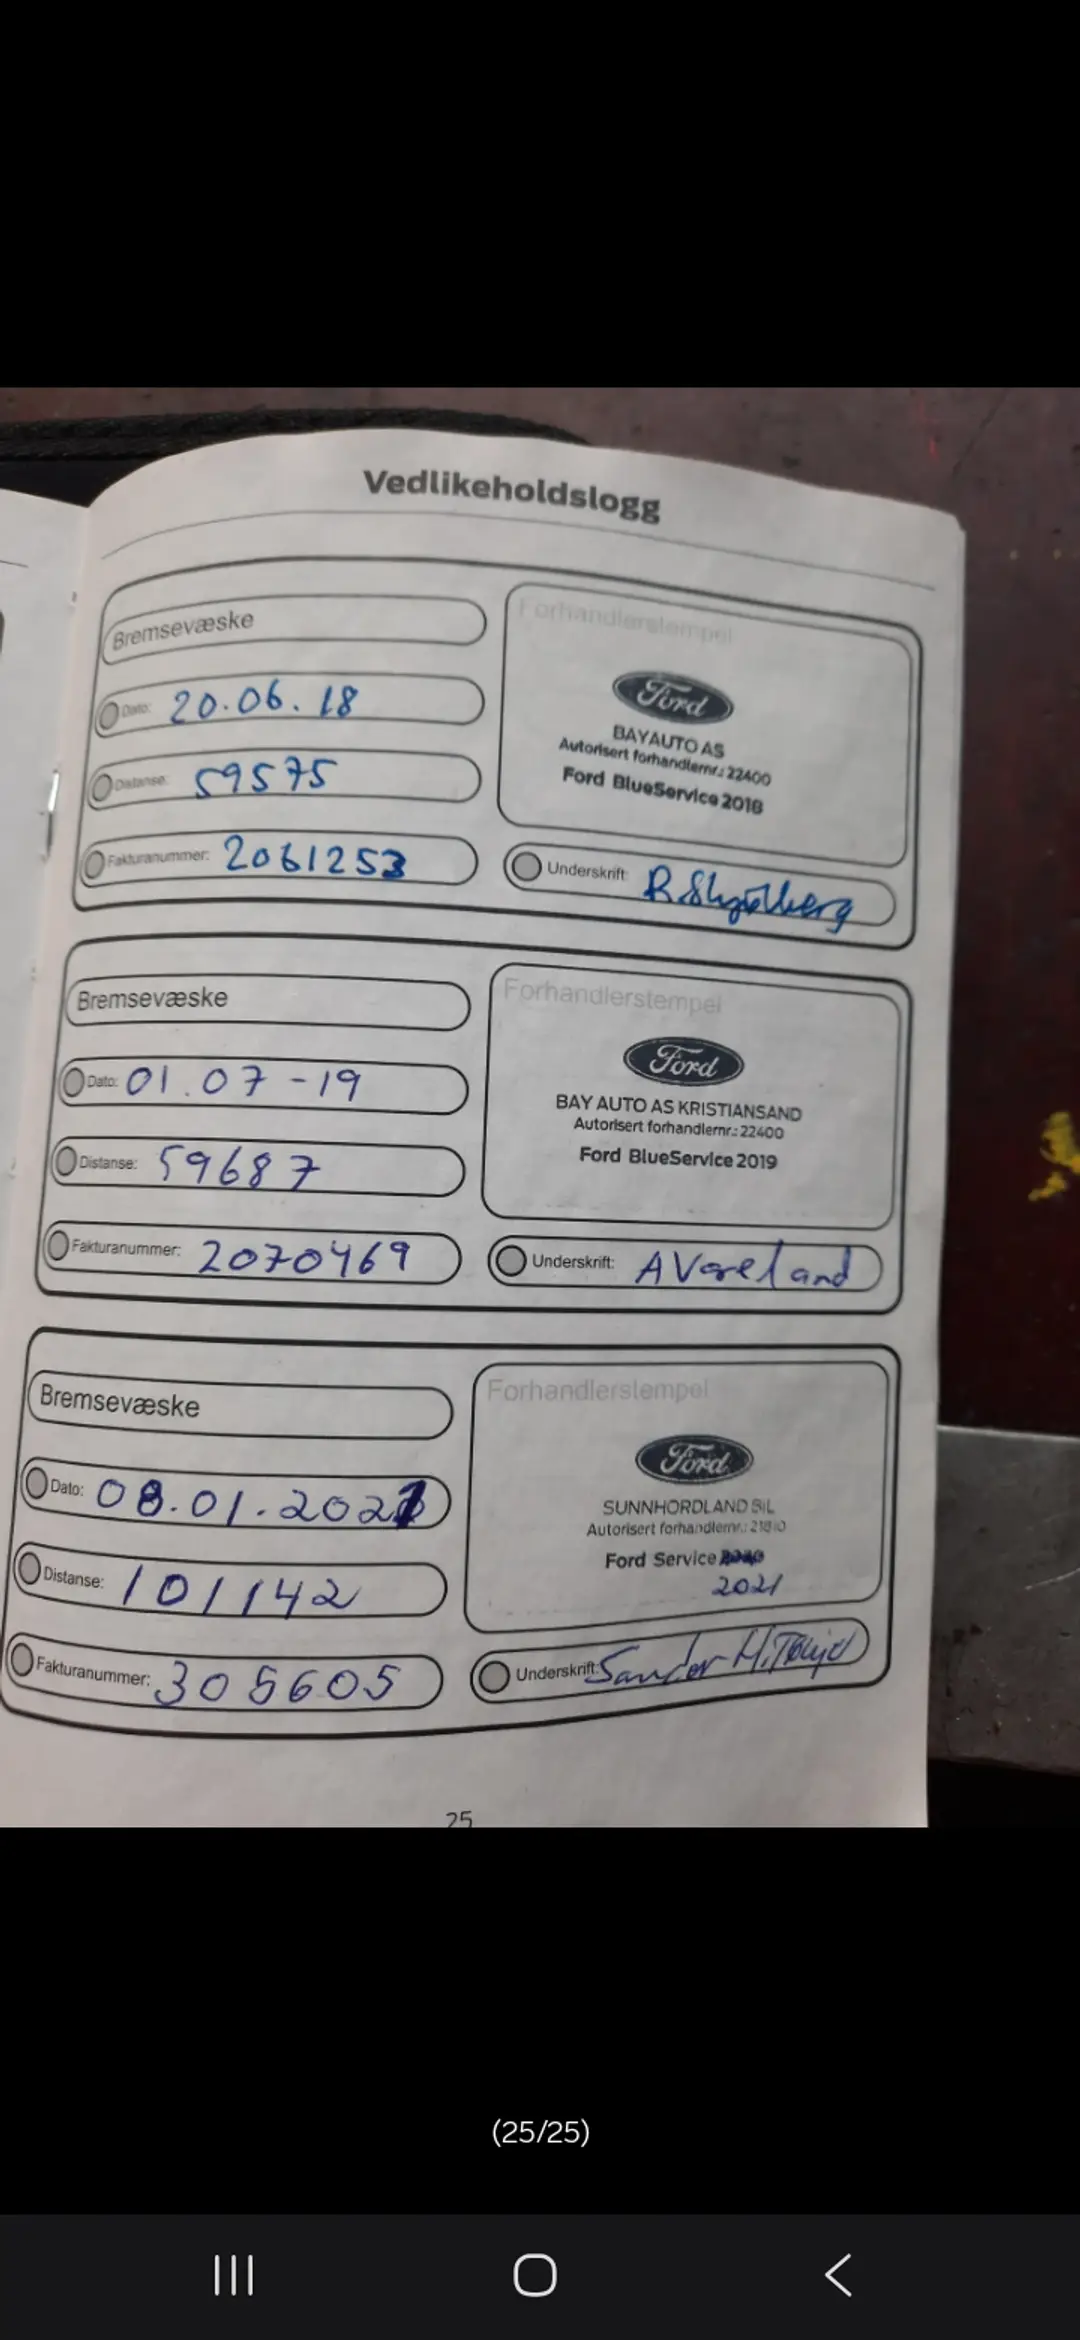 Vedlikeholdslogg
Bremsevæske
Dato: 20.06.18
Distanse: 59575
Fakturanummer: 2061253
Forhandlerstempel
Ford
BAYAUTO AS
Autorisert forhandlernr.: 22400
Ford BlueService 2018
Underskrift:
Bremsevæske
Dato: 01.07-19
Distanse: 59687
Fakturanummer: 2070469
Forhandlerstempel
Ford
BAY AUTO AS KRISTIANSAND
Autorisert forhandlernr.: 22400
Ford BlueService 2019
Underskrift: A
Bremsevæske
Dato: 08.01.2021
Distanse: 101142
Fakturanummer: 305605
Forhandlerstempel
Ford
SUNNHORDLAND BIL
Autorisert forhandlernr.:
Ford Service
2021
Underskrift: Sander M.
25
(25/25)